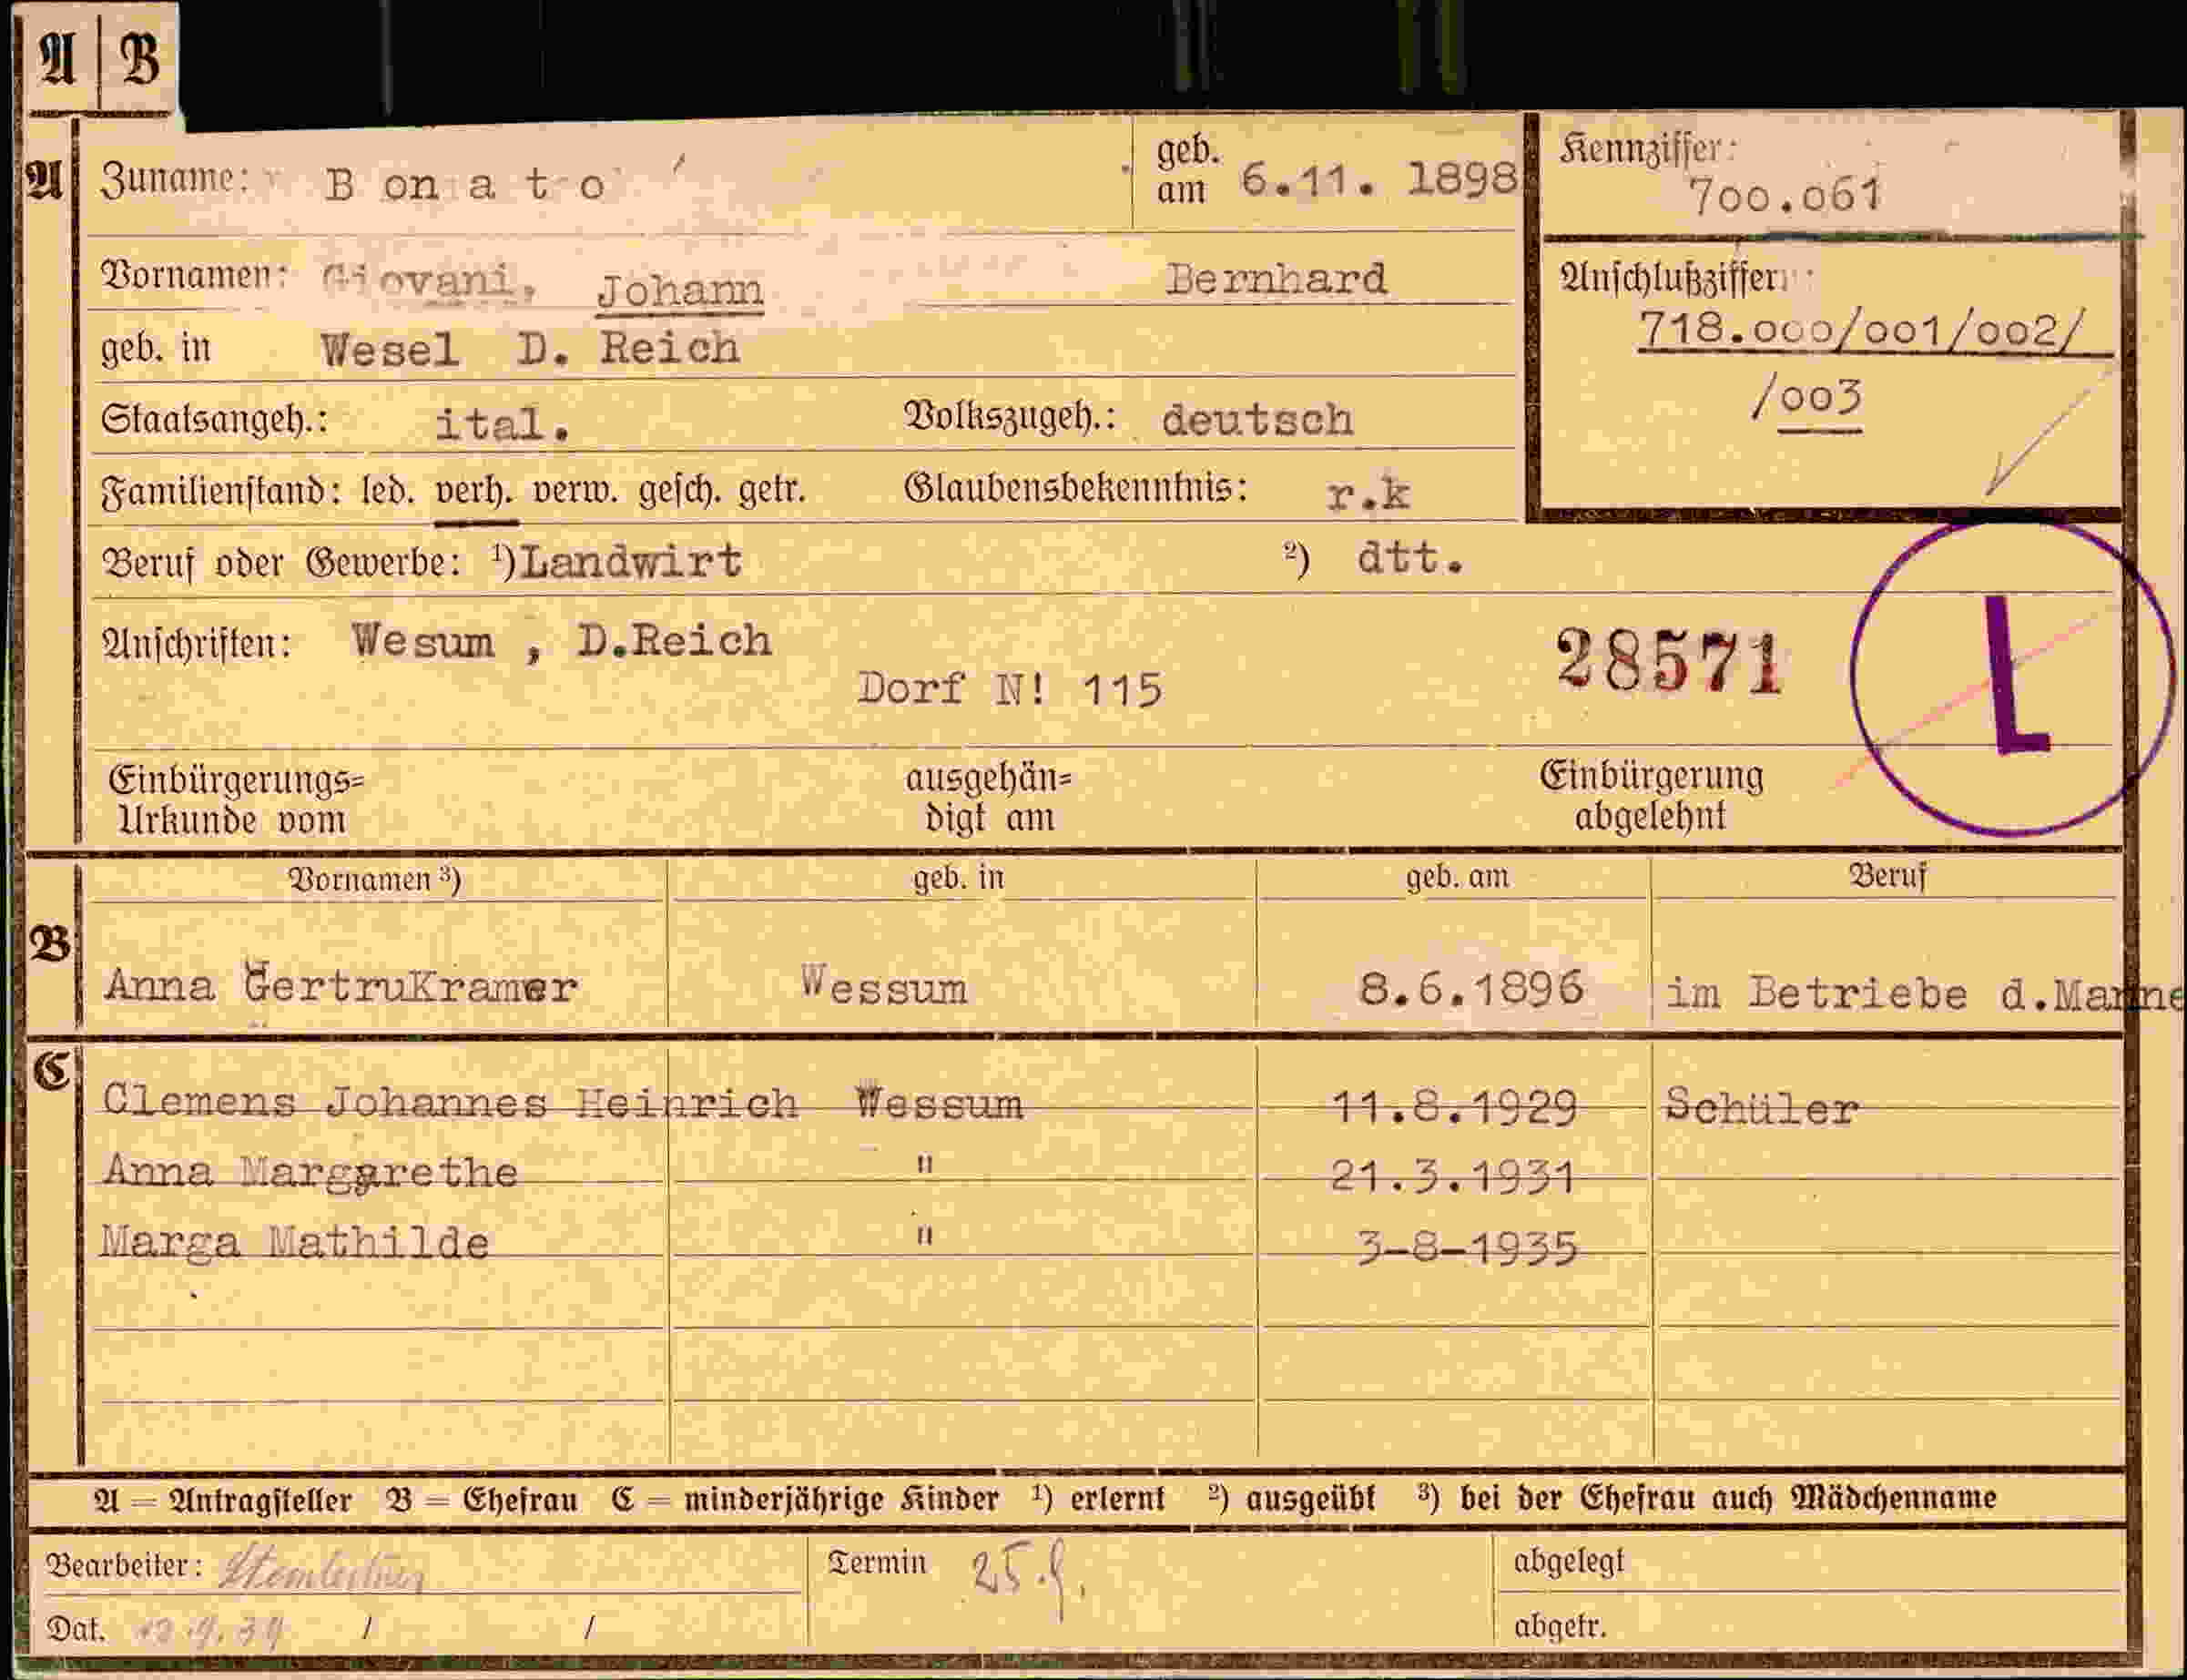 A B
A Zuname: Bonato geb. am 6.11. 1898 Kennziffer: 700.061
Vornamen: Giovani, Johann Bernhard Anschlußziffer:
718.000/001/002/
/003
geb. in Wesel D. Reich
Staatsangeh.: ital. Volkszugeh.: deutsch
Familienstand: led. verh. verw. gesch. getr. Glaubensbekenntnis: r.k
Beruf oder Gewerbe: ¹)Landwirt ²) dtt.
Anschriften: Wesum , D.Reich
Dorf N! 115
28571 L
Einbürgerungs=
Urkunde vom
ausgehän=
digt am
Einbürgerung
abgelehnt
Vornamen ³) geb. in geb. am Beruf
B Anna GertruKramer Wessum 8.6.1896 im Betriebe d.Manne
C Clemens Johannes Heinrich Wessum 11.8.1929 Schüler
Anna Margarethe " 21.3.1931
Marga Mathilde " 3-8-1935
A = Antragsteller B = Ehefrau C = minderjährige Kinder ¹) erlernt ²) ausgeübt ³) bei der Ehefrau auch Mädchenname
Bearbeiter: Termin 25.9. abgelegt
Dat. / / abgetr.